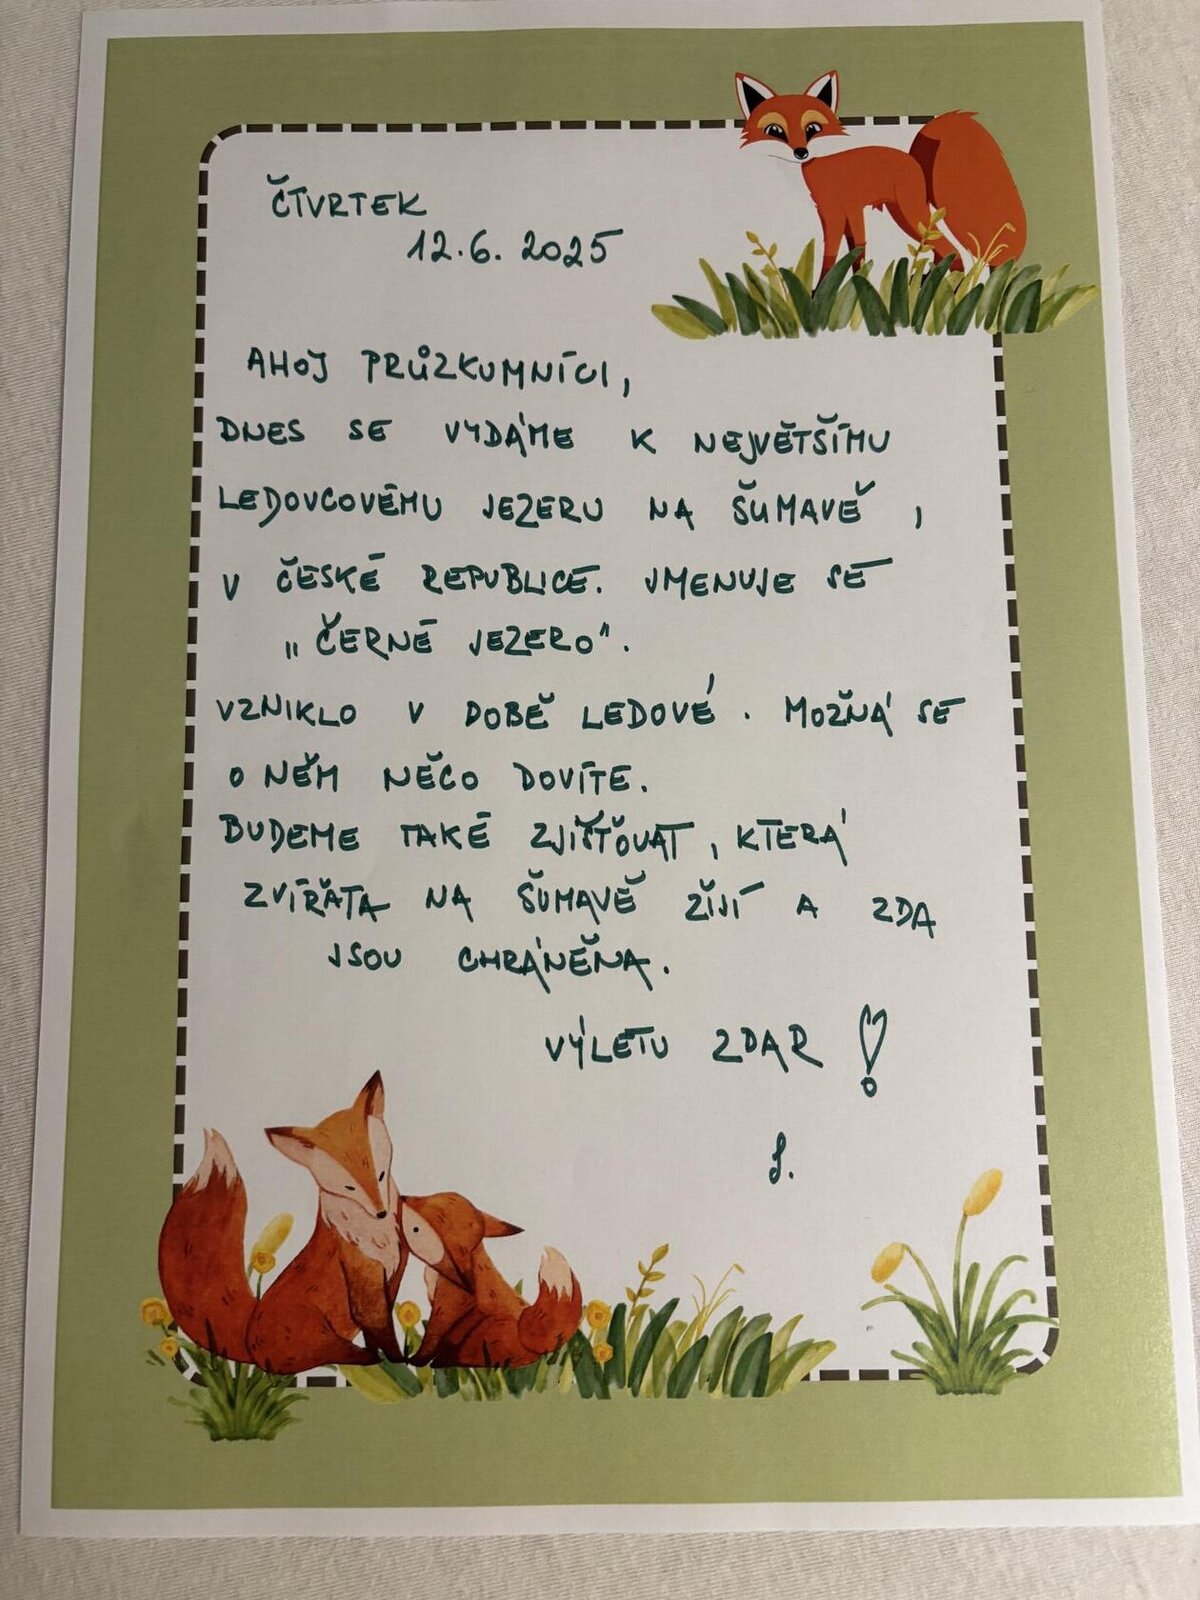 ČTVRTEK
12.6. 2025
AHOJ PRŮZKUMNÍCI,
DNES SE VYDÁME K NEJVĚTŠÍMU
LEDOVCOVÉMU JEZERU NA ŠUMAVĚ,
V ČESKÉ REPUBLICE. JMENUJE SE
„ČERNÉ JEZERO".
VZNIKLO V DOBĚ LEDOVÉ. MOŽNÁ SE
O NĚM NĚCO DOVÍTE.
BUDEME TAKÉ ZJIŠŤOVAT, KTERÁ
ZVÍŘATA NA ŠUMAVĚ ŽIJÍ A ZDA
JSOU CHRÁNĚNA.
VÝLETU ZDAR!